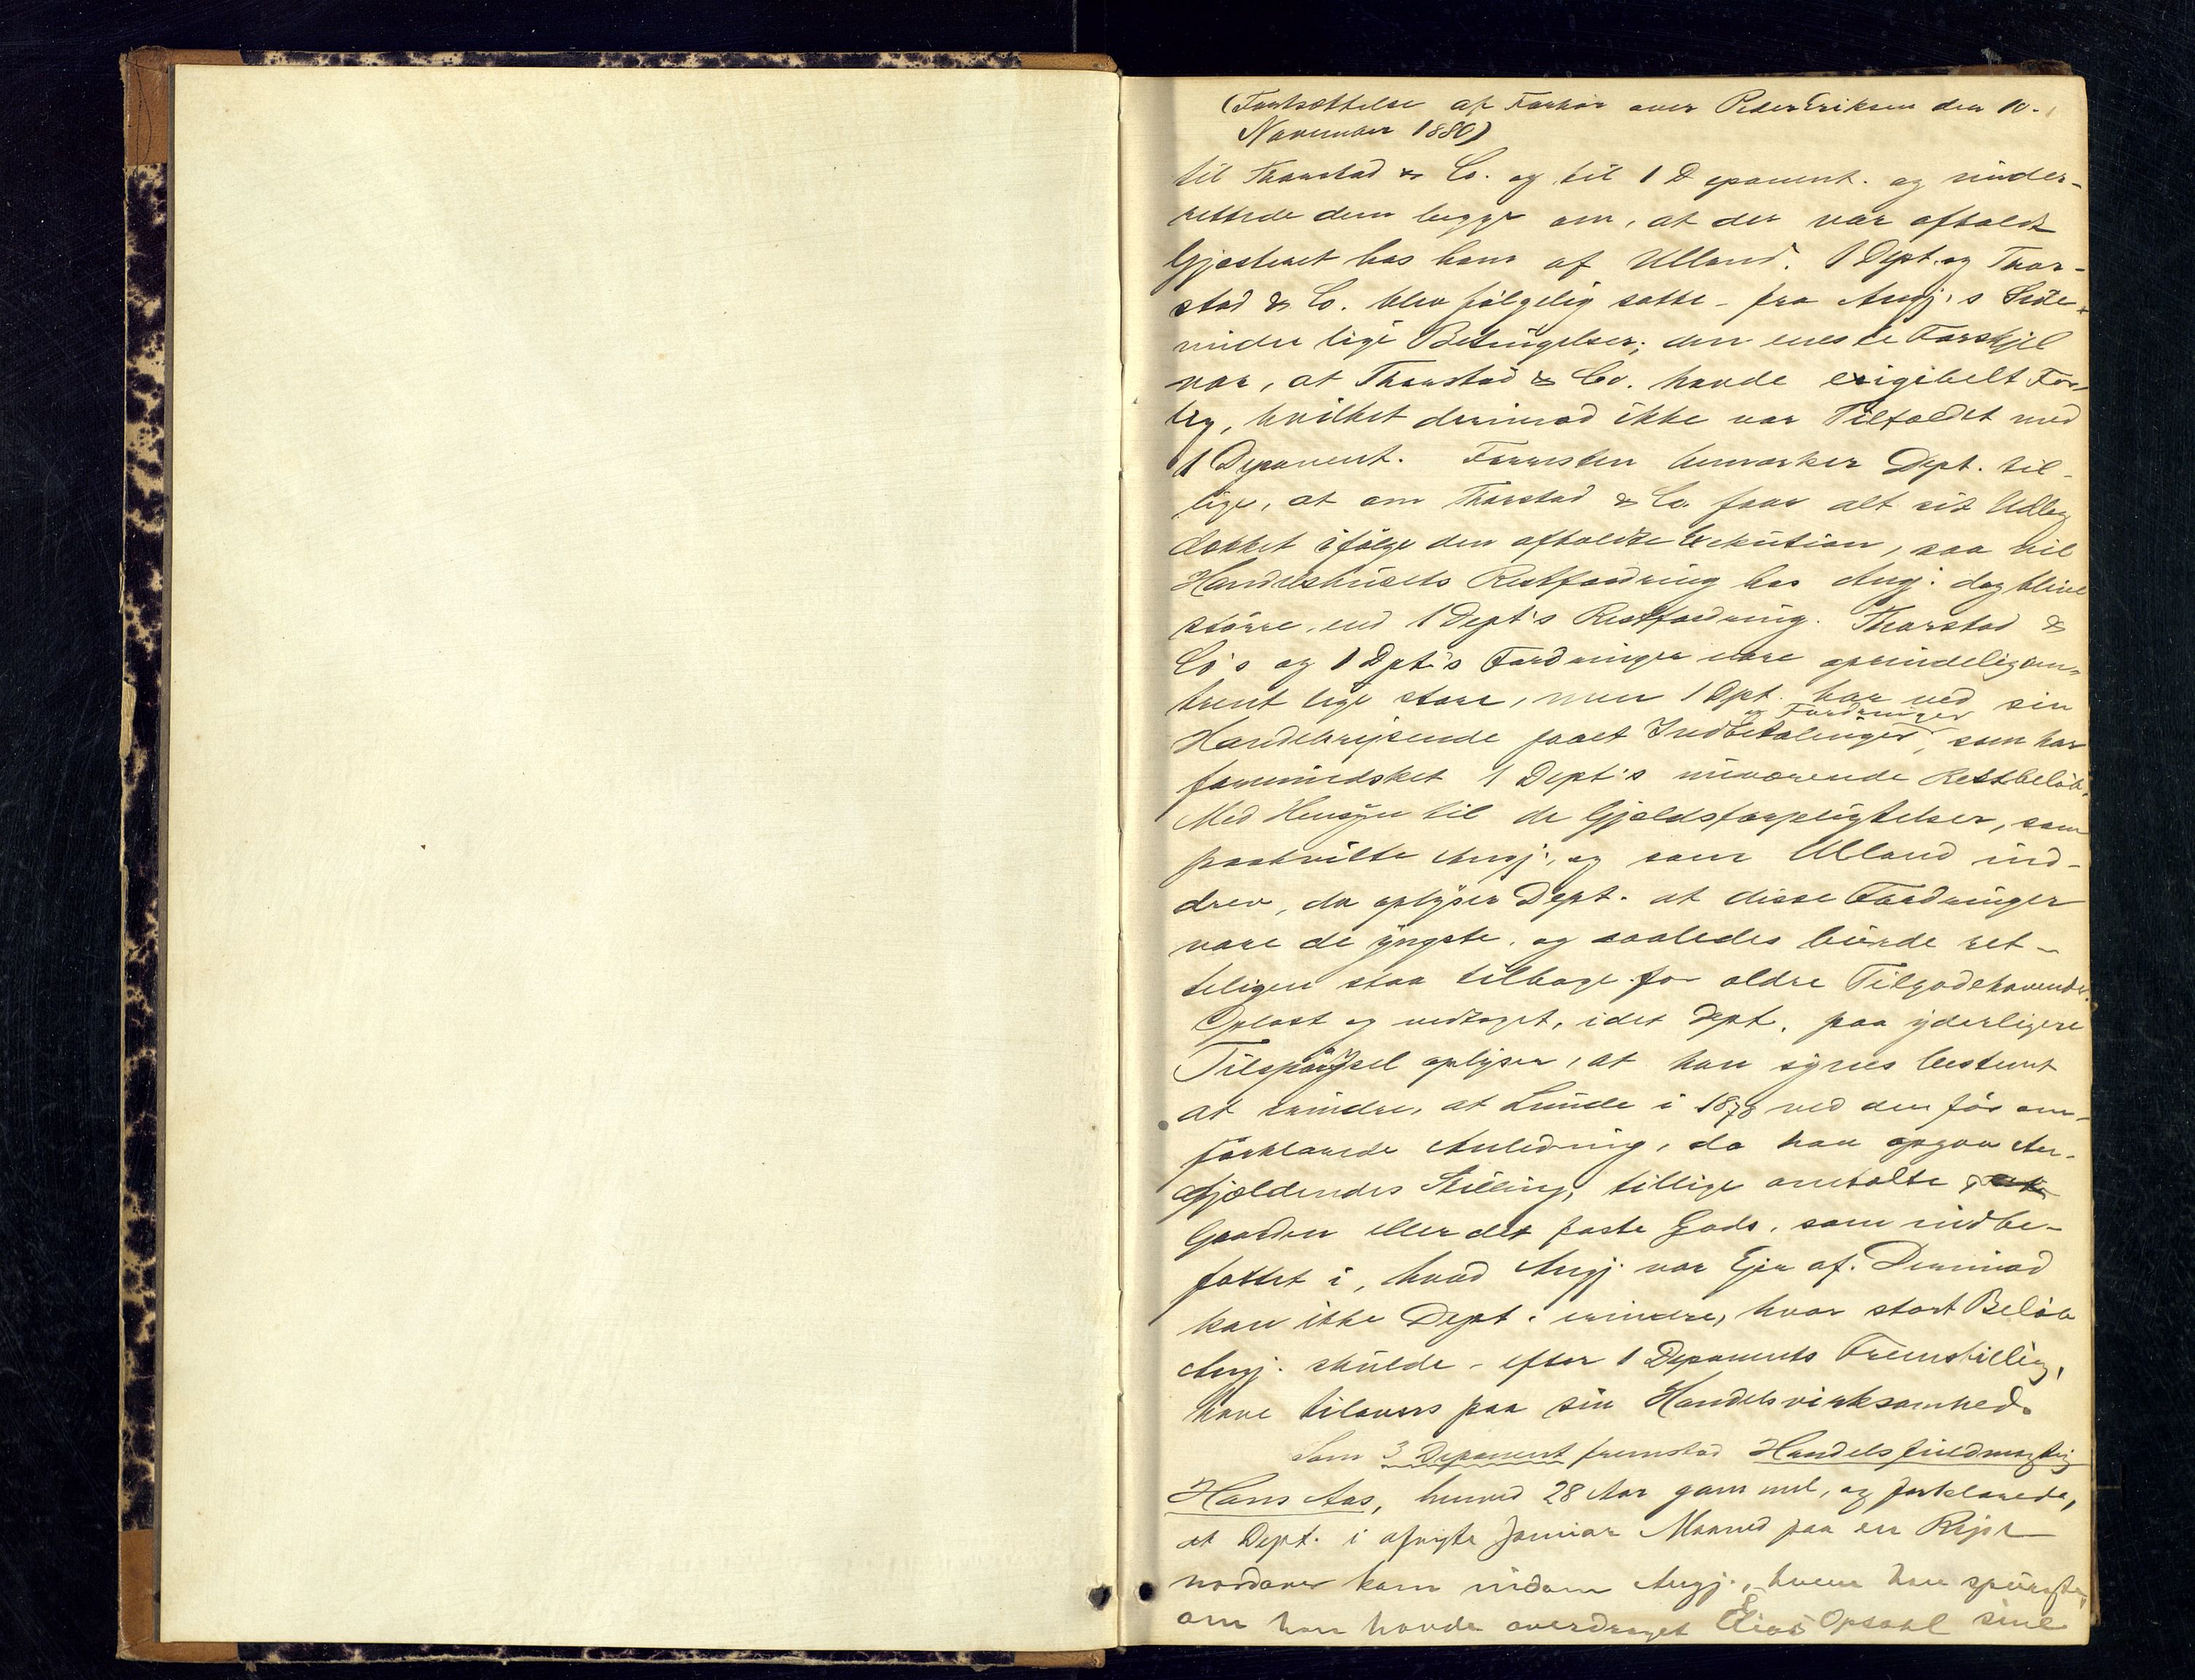 (Fortsættelse af Forhør over Peder Eriksen den 10.
November 1880)
til Thorstad & Co. og til 1 Deponent. og under-
rettede dem begge om, at der var afholdt
Gjesteret hos ham af Ulland. 1 Dept. og Thor-
stad & Co. blev følgelig satte - fra Angj.s Side -
under lige Betingelser; den eneste Forskjel
var, at Thorstad & Co. havde exigibelt For-
lig, hvilket derimod ikke var Tilfældet med
1 Deponent. Forresten bemærker Dept. til-
lige, at om Thorstad & Co. faar alt sit Udlæg
dækket ifølge den afholdte Exekution, saa vil
Handelshusets Restfordring hos Angj. dog blive
større, end 1 Dept's Restfordring. Thorstad &
Co's og 1 Dpt's Fordringer vare oprindelig om-
trent lige store, men 1 Dpt. har ved sin
Handelsreisende faaet Indbetalinger og Fordringer, som har
formindsket 1 Dept's nuværende Restbeløb.
Med Hensyn til de Gjældsforpligtelser, som
paahvilte Angj., og som Ulland ind-
drev, da oplyser Dept. at disse Fordringer
vare de yngste, og saaledes burde ret-
teligen staa tilbage for ældre Tilgodehavender.
Oplæst og vedtaget, idet Dept. paa yderligere
Tilspørgsel oplyser, at han synes bestemt
at erindre, at Lunde i 1878 ved den før om-
forklarede Anledning, da han opgav An-
gjældendes Stilling, tillige omtalte
Gaarden eller det faste Gods, som indbe-
fattet i, hvad Angj. var Ejer af. Derimod
kan ikke Dept. erindre, hvor stort Beløb
Angj. skulde - efter 1 Deponents Fremstilling,
have tilovers paa sin Handelsvirksomhed.
Som 3 Deponent fremstod Handelsfuldmægtig
Hans Aas, henved 28 Aar gammel, og forklarede,
at Dept. i afvigte Januar Maaned paa en Rejse
nordover kom indom Angj., hvem han spurgte,
om han havde overdraget Elias Opsahl sine